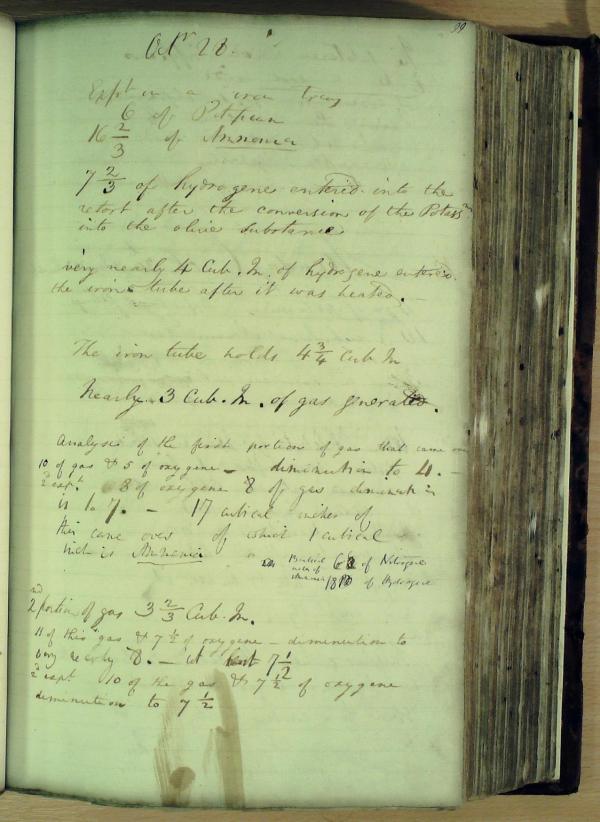 39
Octr 28.
Expt in a iron tray
6 of Potassium
16 2/3 of Ammonia
7 2/3 of hydrogene entered into the
retort after the conversion of the Potassm
into the olive substance
very nearly 4 Cub. In. of hydrogene entered
the iron tube after it was heated. —
The iron tube holds 4 3/4 Cub In
Nearly 3 Cub. In. of gas generated.
Analysis of the first portion of gas that came
10 of gas & 5 of oxygene — diminution to 4. —
2d expt. 8 of oxygene 8 of gas diminution
is to 7. — 17 cubical inches of
this came over of which 1 cubical
inch is Ammonia
of Nitrogene
of Hydrogene
2nd portion of gas 3 2/3 Cub. In.
11 of this gas & 7 1/2 of oxygene — diminution to
very nearly 8. — 7 1/2
2d expt 10 of the gas & 7 1/2 of oxygene
diminution to 7 1/2